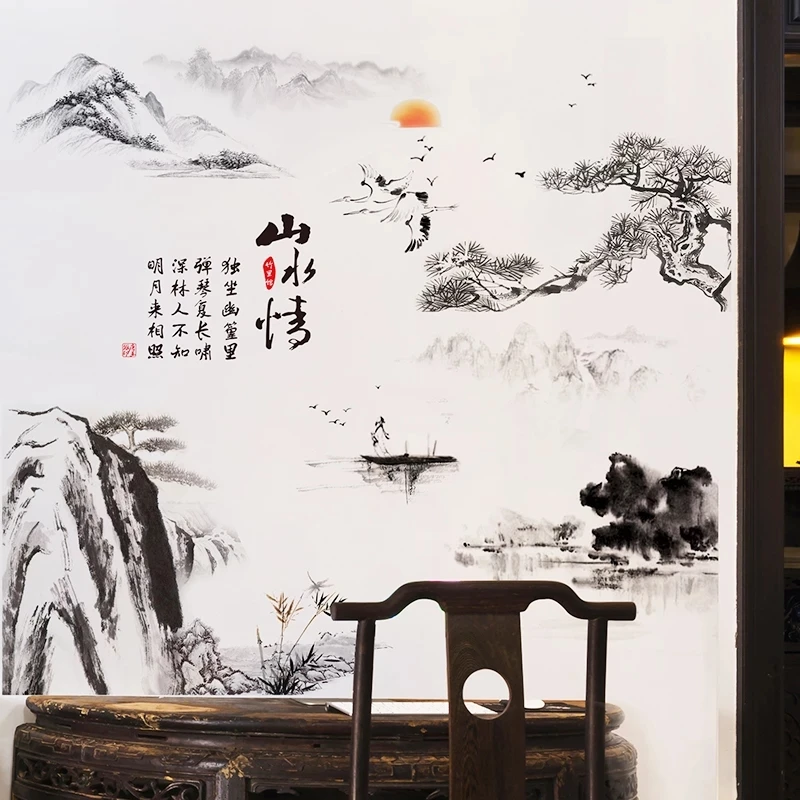 山水情
竹里馆
独坐幽篁里
弹琴复长啸
深林人不知
明月来相照